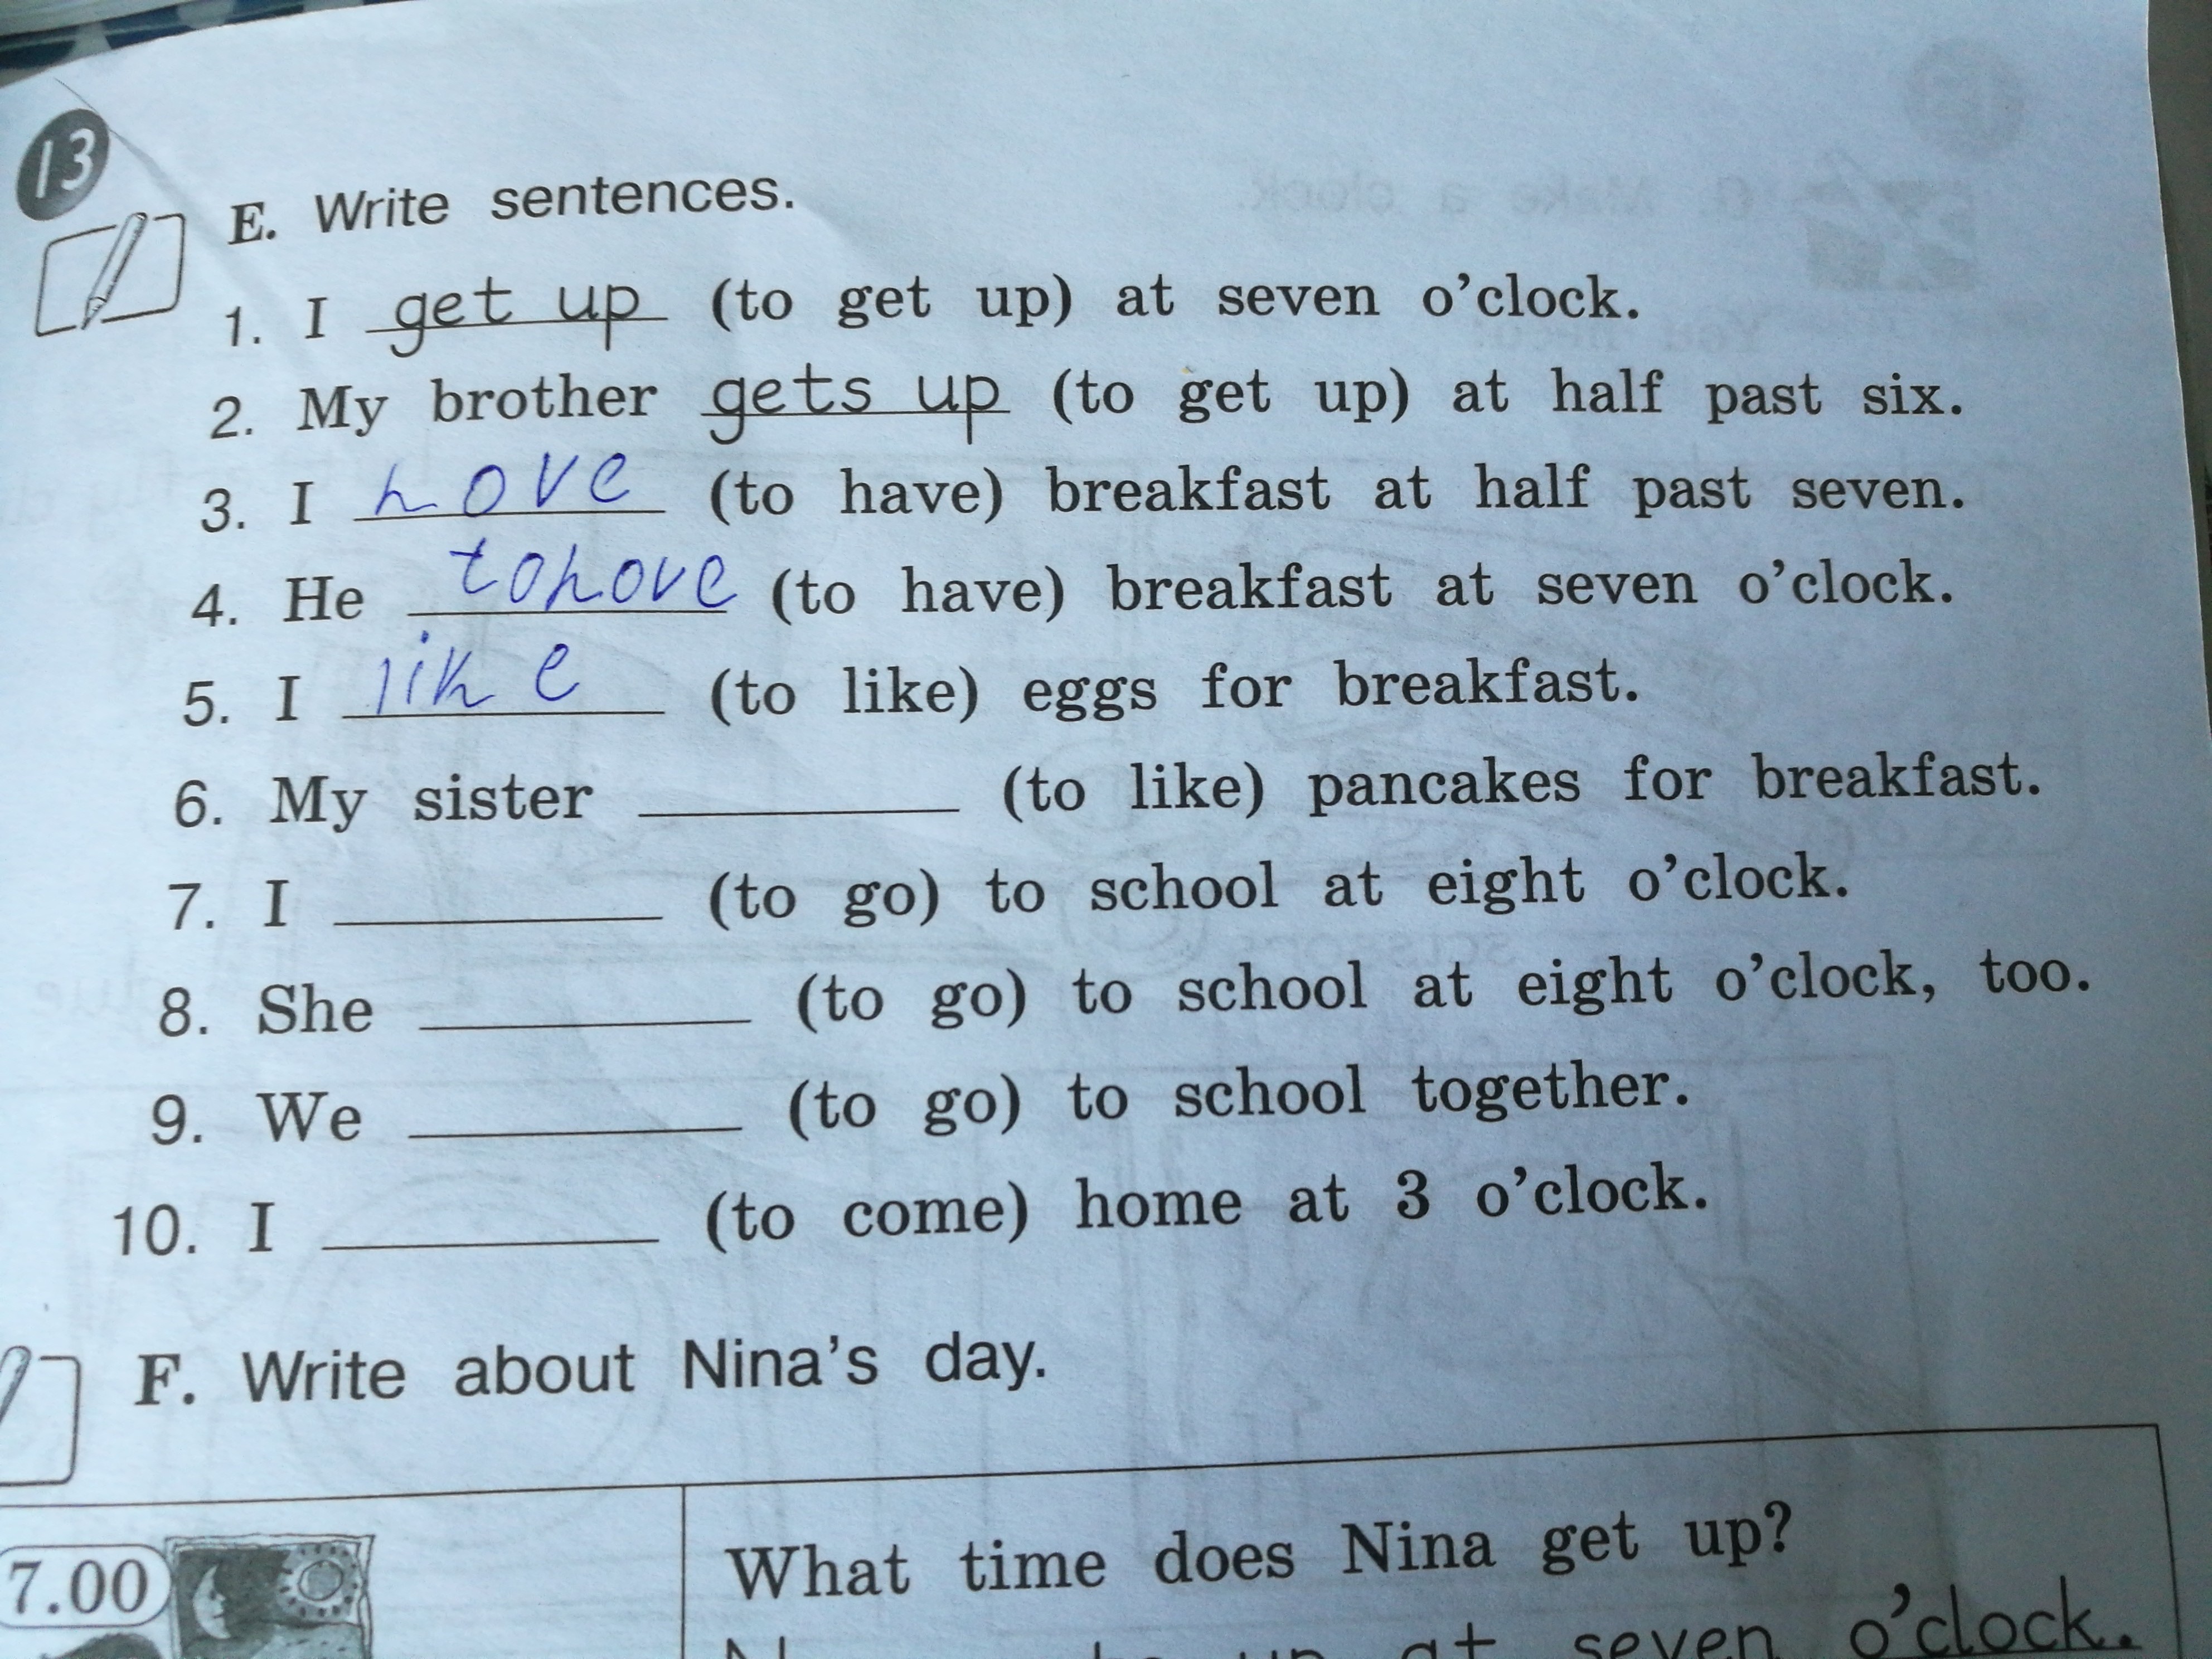 13
E. Write sentences.
1. I get up (to get up) at seven o'clock.
2. My brother gets up (to get up) at half past six.
3. I hove (to have) breakfast at half past seven.
4. He tohove (to have) breakfast at seven o'clock.
5. I like (to like) eggs for breakfast.
6. My sister __________ (to like) pancakes for breakfast.
7. I __________ (to go) to school at eight o'clock.
8. She __________ (to go) to school at eight o'clock, too.
9. We __________ (to go) to school together.
10. I __________ (to come) home at 3 o'clock.
F. Write about Nina's day.
7.00
What time does Nina get up?
up at seven o'clock.